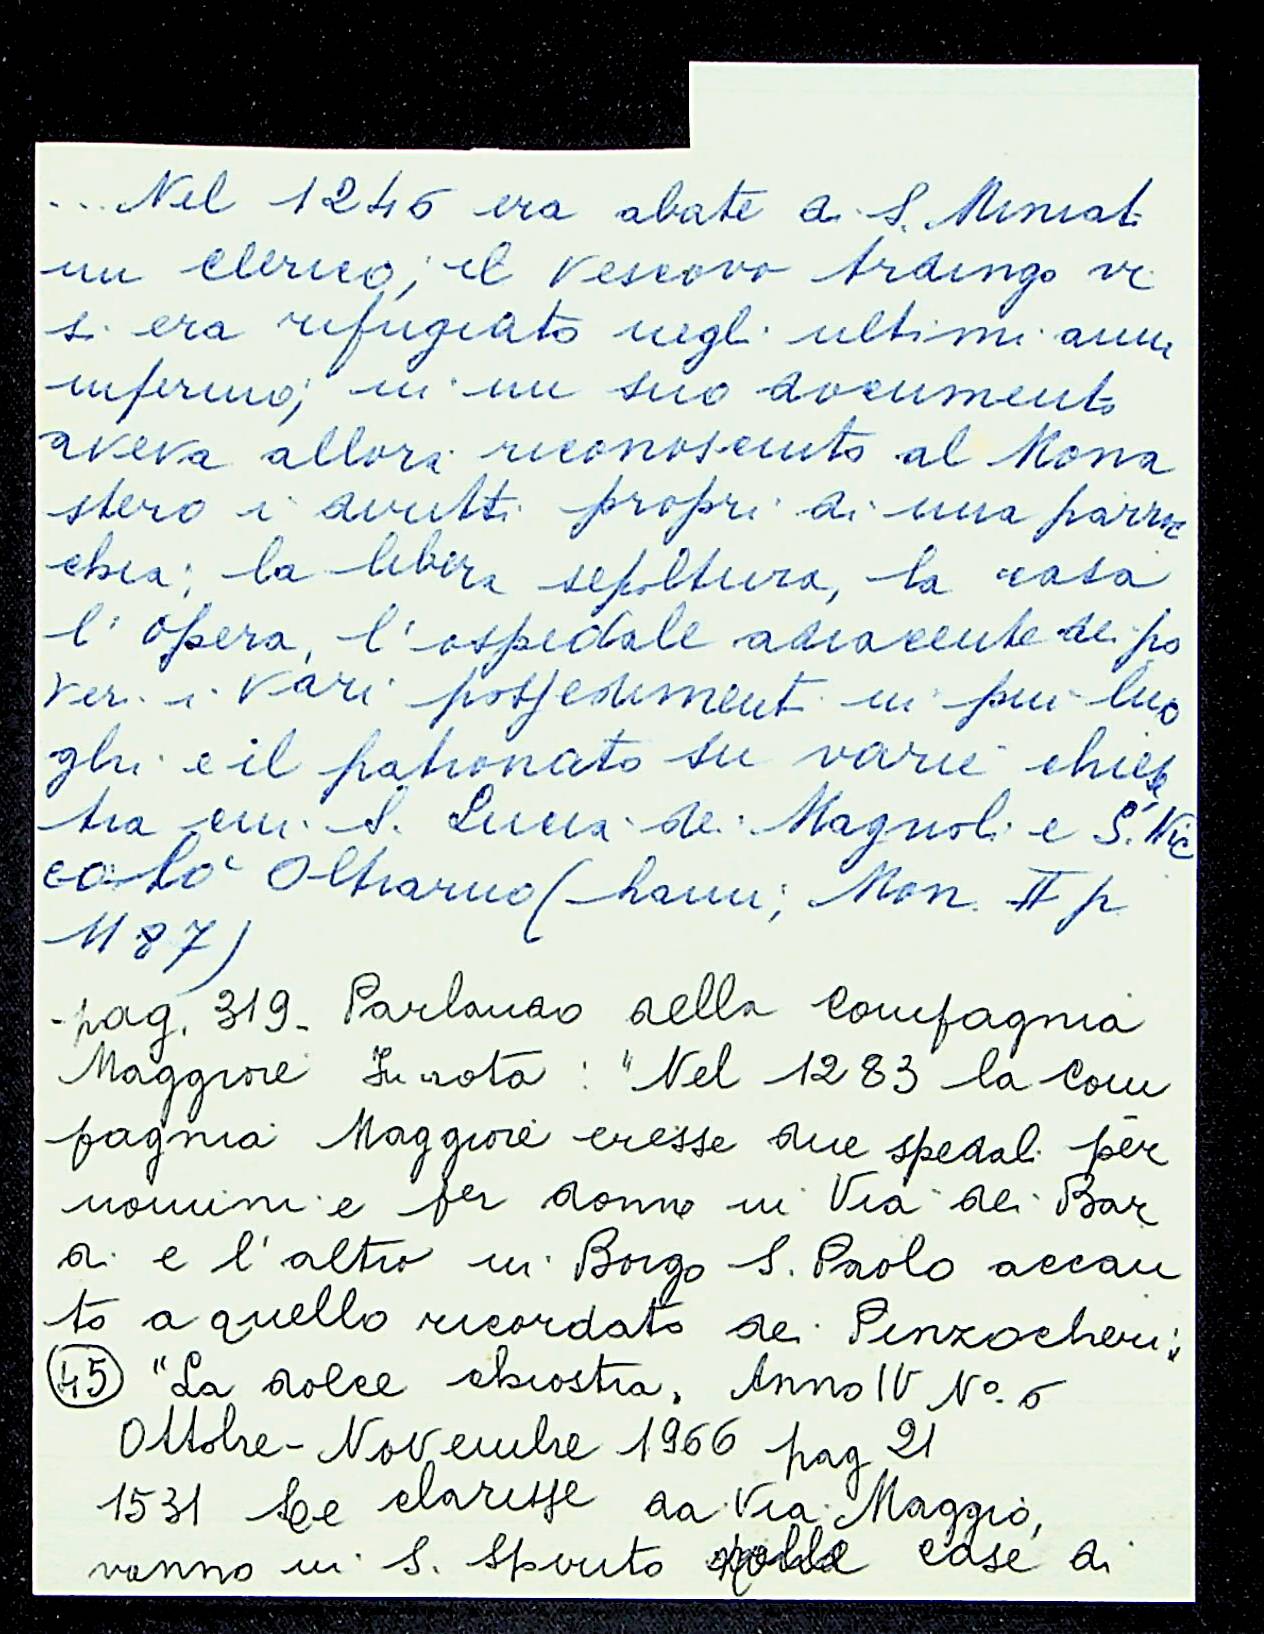 ...Nel 1246 era abate di S. Miniat.
un clerico; il Vescovo Ardingo vi
si era rifugiato negli ultimi anni
infermo; in un suo documento
aveva allora riconosciuto al Mona
stero i diritti propri di una parroc
chia; la libera sepoltura, la casa
l'opera, l'ospedale adiacente dei po
veri i vari possedimenti in piu luo
ghi e il patronato su varie chiese,
tra cui S. Lucia dei Magnoli e S. Nic
colò Oltrarno (Lami; Mon. II p.
1187)
- pag. 319 - Parlando della Compagnia
Maggiore In nota: "Nel 1283 la Com
pagnia Maggiore eresse due spedali per
uomini e per donne in Via dei Bar
di e l'altro in Borgo S. Paolo accan
to a quello ricordato dei Pinzocheri"
45 "La dolce chiostra" Anno IV Nº. 6
Ottobre - Novembre 1966 pag 21
1531 Le clarisse da Via Maggio,
vanno in S. Spirito case di